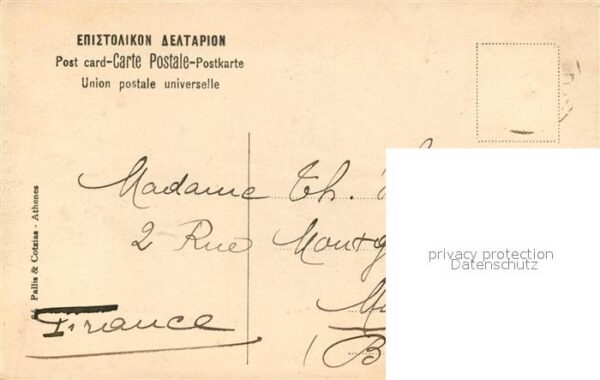 ΕΠΙΣΤΟΛΙΚΟΝ ΔΕΛΤΑΡΙΟΝ
Post card-Carte Postale-Postkarte
Union postale universelle
Pallis & Cotzias - Athenes
Madame Th.
2 Rue
France
(B
privacy protection
Datenschutz